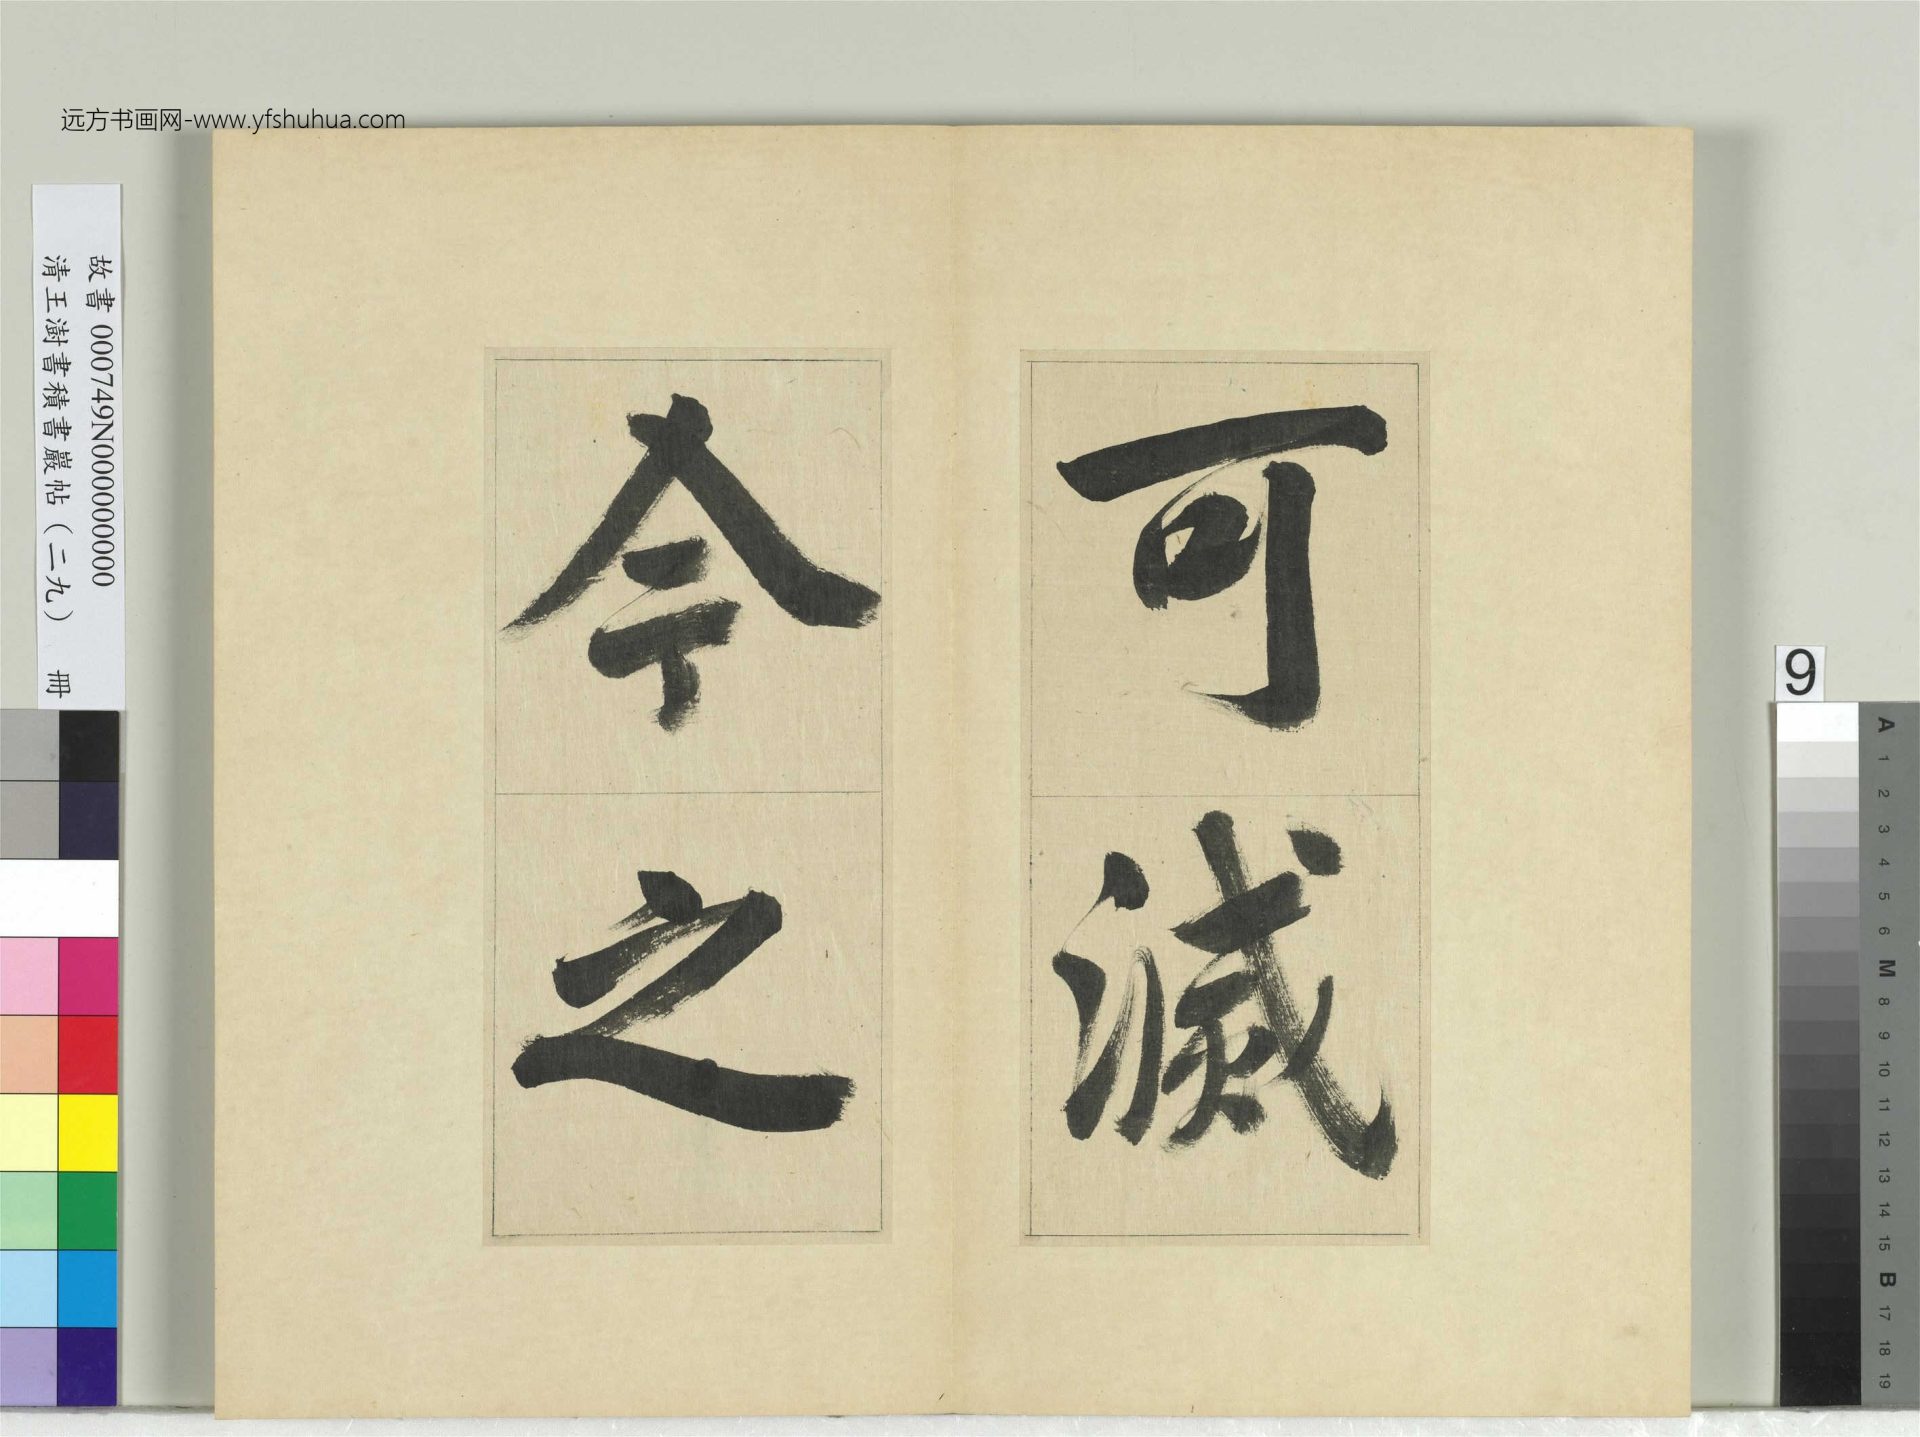 远方书画网-www.yfshuhua.com
故書 000749N000000000
清王澍書積書巖帖（二九） 冊
可滅
今之
9
A
1
2
3
4
5
6
M
8
9
10
11
12
13
14
15
B
17
18
19